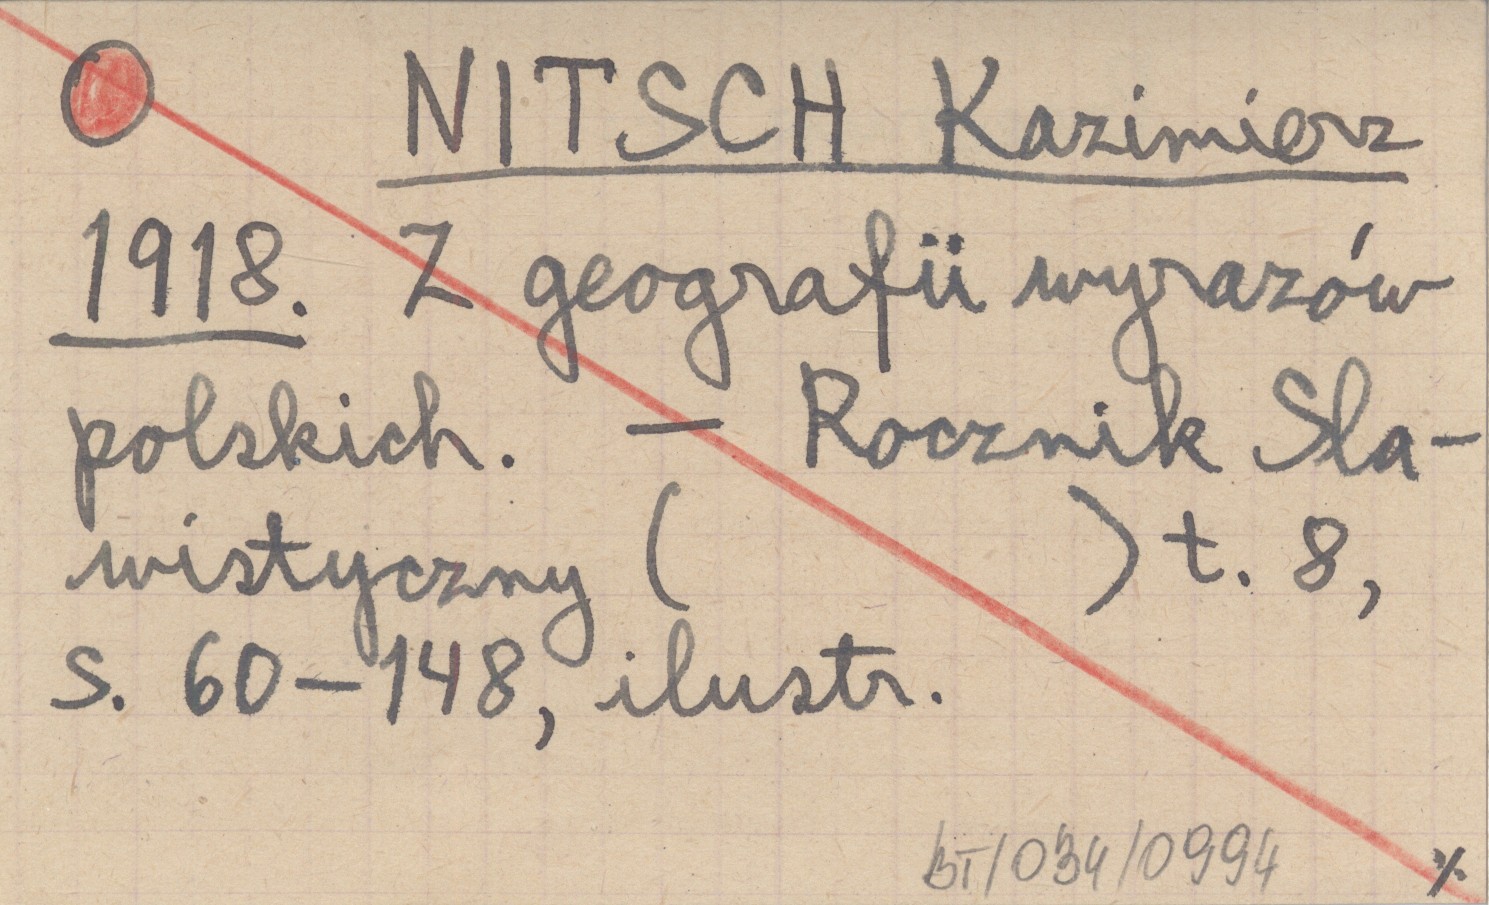 NITSCH Kazimierz
1918. Z geografii wyrazów
polskich. — Rocznik Sla-
wistyczny (          ) t. 8,
s. 60–148, ilustr.
BT/034/0994